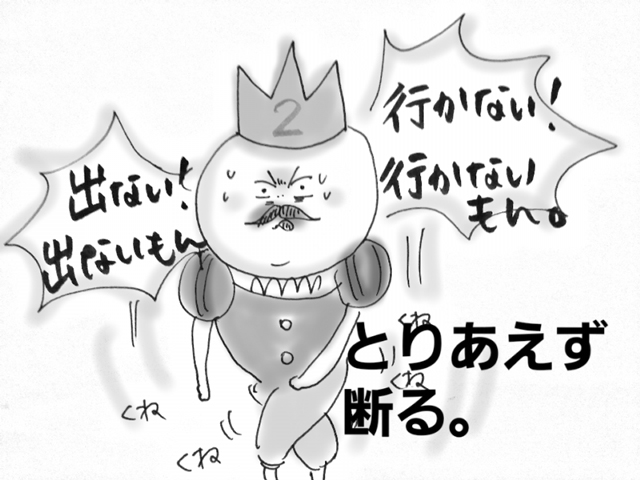 2
行かない!
行かない
もん。
出ない!
出ないもん
くね
とりあえず
くね
断る。
くね
くね